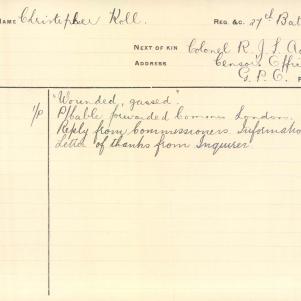 NAME Christopher Roll. REG. &C. 27th Bat
NEXT OF KIN Colonel R. J. L.
ADDRESS Censors Offi
G. P. O.
"Wounded, gassed".
1/P P/bable forwarded Commrs London.
Reply from Commissioners. Informatio
Letter of thanks from Inquirer